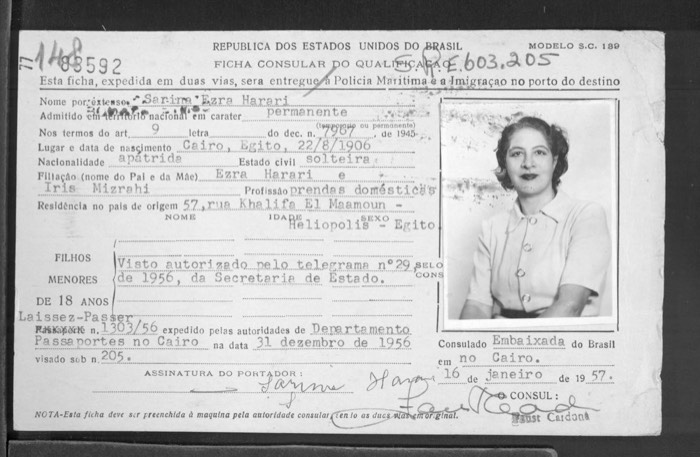 77
148
93592
REPÚBLICA DOS ESTADOS UNIDOS DO BRASIL
MODELO S.C. 139
FICHA CONSULAR DO QUALIFICAÇÃO
S.R.E.603.205
Esta ficha, expedida em duas vias, sera entregue á Polícia Marítima e á Imigraçao no porto do destino
Nome por extenso Sarina Ezra Harari
Admitido em território nacional em carater permanente
(temporário ou permanente)
Nos termos do art. 9 letra do dec. n. 7967 de 1945
Lugar e data de nascimento Cairo, Egito, 22/8/1906
Nacionalidade apátrida Estado civil solteira
Filiação (nome do Pai e da Mãe) Ezra Harari e
Iris Mizrahi Profissão prendas domésticas
Residência no pais de origem 57,rua Khalifa El Maamoun -
NOME IDADE SEXO
Heliopolis - Egito.
FILHOS
MENORES
DE 18 ANOS
Visto autorizado pelo telegrama nº29,
de 1956, da Secretaria de Estado.
SELO
CONS
Laissez-Passer
n. 1303/56 expedido pelas autoridades de Departamento
Passaportes no Cairo na data 31 dezembro de 1956
visado sob n. 205.
Consulado Embaixada do Brasil
em no Cairo.
16 de janeiro de 1957.
ASSINATURA DO PORTADOR:
Sarina Harari
O CONSUL:
Faust Cardona
NOTA-Esta ficha deve ser preenchida à maquina pela autoridade consular, tanto as duas vias em original.